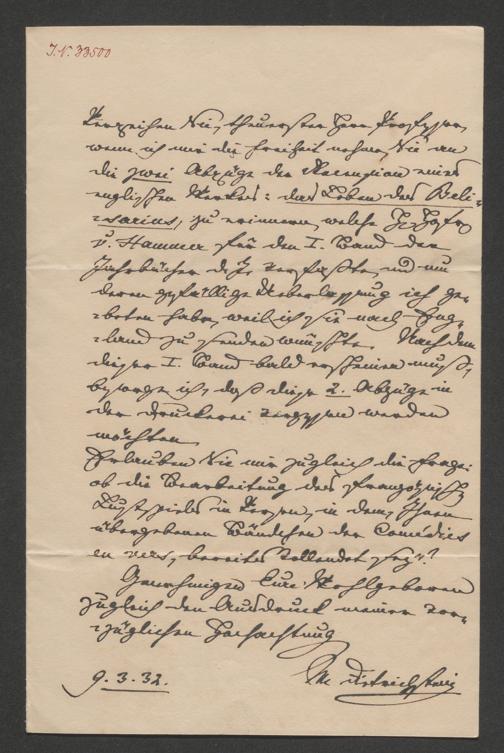 J.N. 33500
Verzeihen Sie, theuerster Herr Professor,
wenn ich mir die Freiheit nehme Sie an
die zwei Abzüge der Recension eines
englischen Werkes: das Leben des Beli-
-sarius, zu erinnern, welche
v. Hammer für den I. Band der
Jahrbücher verfaßte, und um
deren gefällige Ueberlassung ich ge-
-beten habe, weil ich sie nach Eng-
-land zu senden wünschte. Nachdem
dieser I. Band bald erscheinen muß,
besorge ich, daß diese 2. Abzüge in
der Druckerei vergessen werden
möchten.
Erlauben Sie mir zugleich die Frage:
ob die Bearbeitung des französisch
Lustspieles in Versen, in dem, Ihnen
übergebenen Bändchen der Comédies
en vers, bereits vollendet sey?
Genehmigen Eure Wohlgeboren
zugleich den Ausdruck meiner vor-
-züglichen Hochachtung
9.3.32. M Dietrichstein